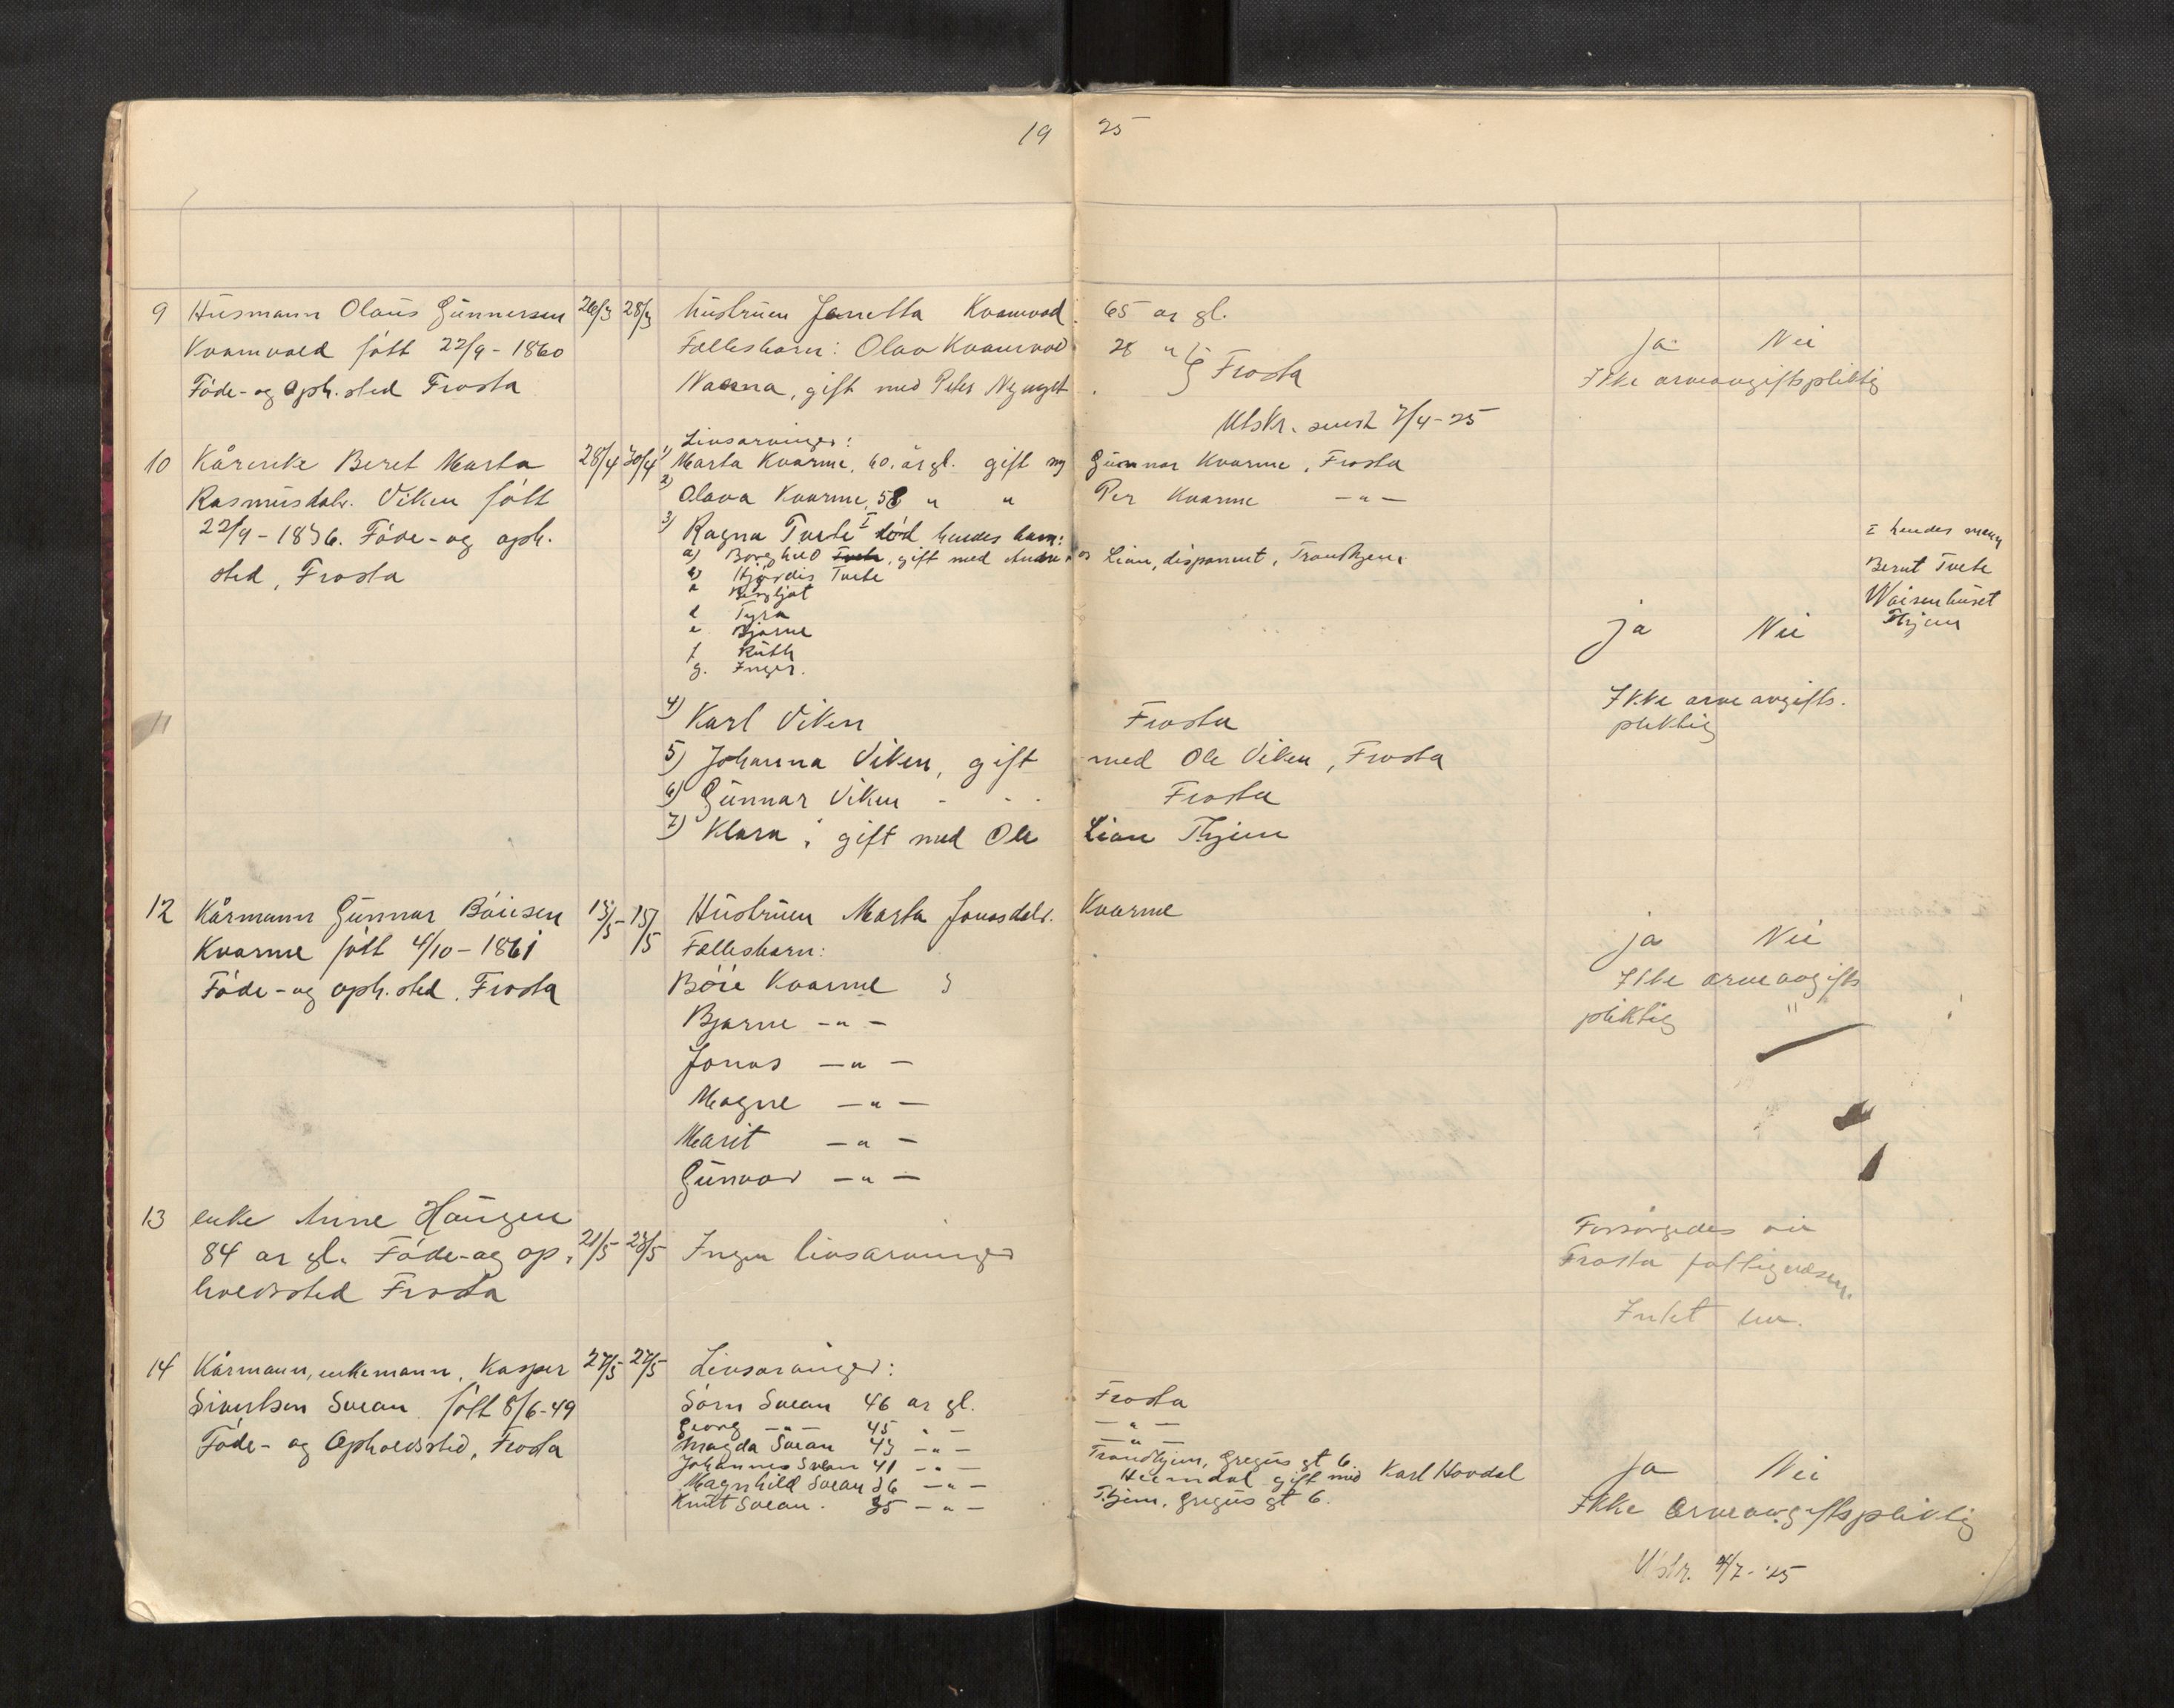 19 25
9 Husmann Olaus Gunnersen 26/3 28/3 hustruen Janetta Kvamvold 65 ar gl.
Kvamvold født 22/9 - 1860 Fællesbarn: Olav Kvamvold 28 "
Føde- og oph. sted Frosta Nanna, gift med Peter Nyaaget Frosta
Ja Nei
Ikke arveavgiftspliktig
Utskr. sendt 7/4-25
Livsarvinger:
10 Kårenke Beret Marta 28/4 30/4 1) Marta Kvarme, 60. år gl. gift m Gunnar Kvarme, Frosta
Rasmusdatr. Viken født 2) Olava Kvarme, 58 " " Per Kvarme -"-
22/9 - 1836. Føde- og oph. 3) Ragna Tvete I død hendes barn:
sted, Frosta
a) Borghild Tvete, gift med Andreas Lian, disponent, Trondhjem
b) Hjørdis Tvete
c Bergljot
d Tyra
e Bjarne
f Ruth
g. Inger.
I hendes mann
Bernt Tvete
Waisenhuset
Thjem
ja Nei
11
4) Karl Viken Frosta
Ikke arveavgifts.
pliktig
5) Johanna Viken, gift med Ole Viken, Frosta
6) Gunnar Viken - - . Frosta
7) Klara, gift med Ole Lian Thjem
12 Kårmann Gunnar Bøiesen 13/5 - 15/5 Hustruen Marta Jonasdatr. Kvarme
Kvarme født 4/10 - 1861 Fællesbarn:
Føde- og oph. sted. Frosta Bøie Kvarme
ja Nei
Ikke arveavgifts
pliktig "
Bjarne -"-
Jonas -"-
Magne -"-
Marit -"-
Gunvor -"-
13 enke Anne Haugen
84 ar gl. Føde- og op. 21/5 23/5 Ingen livsarvinger
holdssted Frosta
Forsørgedes av
Frosta fattigvæsen.
Intet
14 Kårmann, enkemann, Kasper 27/5 27/5 Livsarvinger:
Sivertsen Svean født 8/6-49 Sørn Svean 46 ar gl. Frosta
Føde- og Opholdssted, Frosta Georg -"- 45 " - -"-
Magda Svean 43 -"- -"-
Johannes Svean 41 -"- Trondhjem, Gregus gt 6.
Magnhild Svean 36 -"- Heimdal gift med Karl Hovdal
Knut Svean. 35 -"- Thjem, Gregus gt 6.
Ja Nei
Ikke Arveavgiftspliktig
Utskr. 4/7-'25